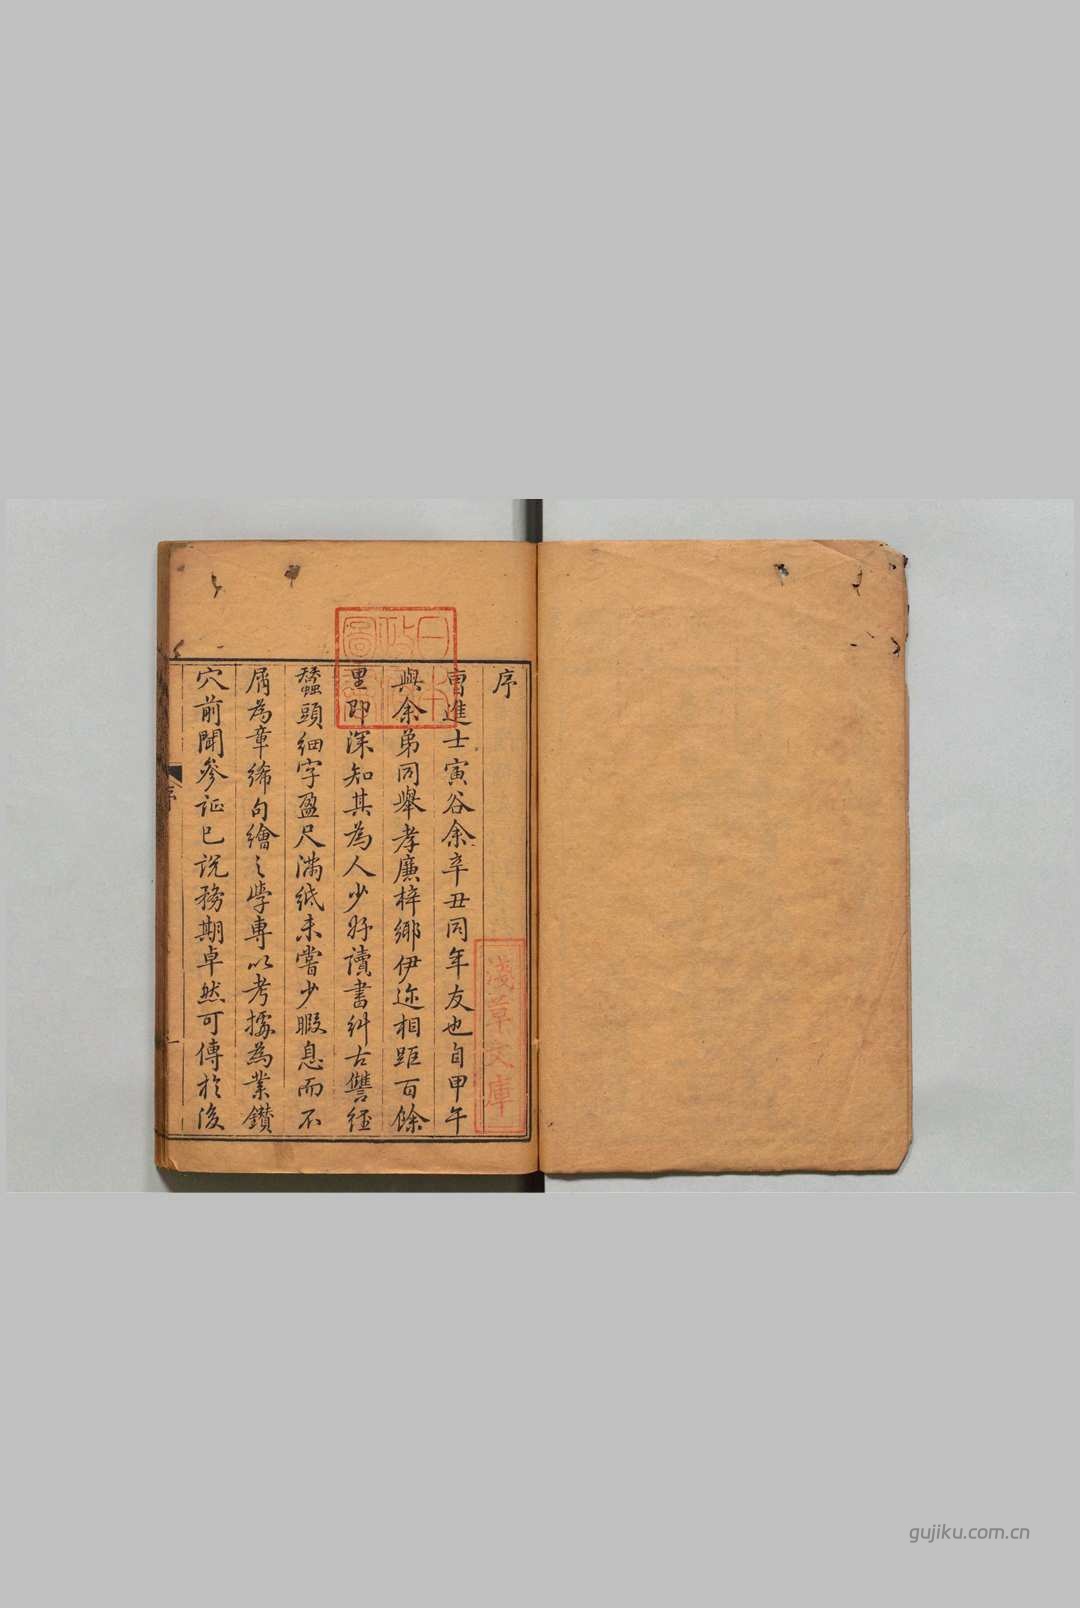 序
曹進士寅谷余辛丑同年友也自甲午
與余弟同舉孝廉梓鄉伊迩相距百餘
里即深知其為人少好讀書糾古讐經
蠶頭細字盈尺滿紙未嘗少暇息而不
屑為章絺句繪之學專以考據為業鑚
穴前聞參証已說務期卓然可傳於後
序
一
日本
政府
圖書
淺草文庫
gujiku.com.cn